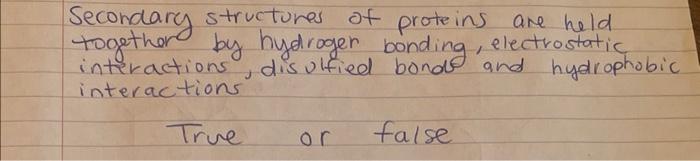 Secondary structures of proteins are held
together by hydrogen bonding, electrostatic
interactions, disulfied bonds and hydrophobic
interactions
True or false